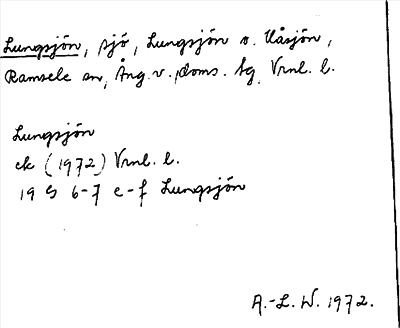 Lungsjön, sjö, Lungsjön o. Uåsjön,
Ramsele sn, Ång. v. doms. tg Vrnl. l.
Lungsjön
ek (1972) Vrnl. l.
19 G 6-7 e-f Lungsjön
A.-L. W. 1972.